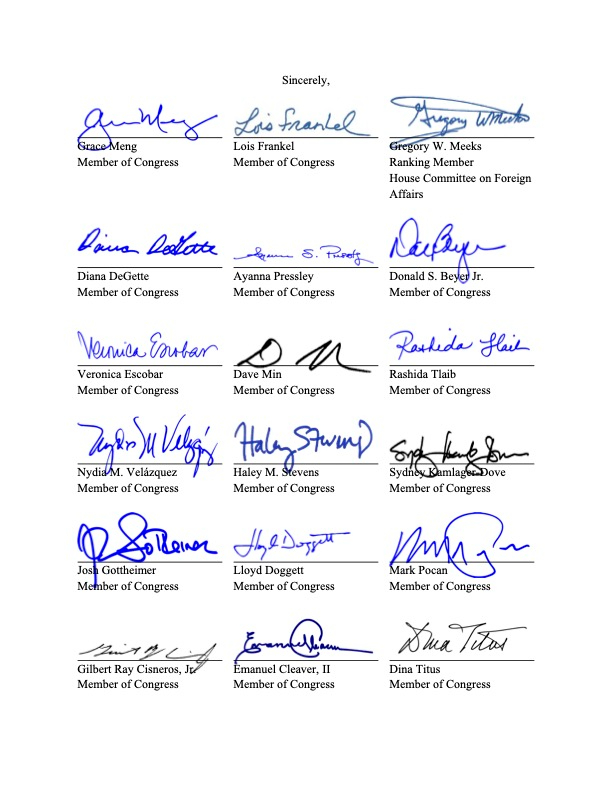 Sincerely,
Grace Meng
Member of Congress
Lois Frankel
Lois Frankel
Member of Congress
Gregory W Meeks
Gregory W. Meeks
Ranking Member
House Committee on Foreign
Affairs
Diana DeGette
Diana DeGette
Member of Congress
Ayanna Pressley
Member of Congress
Donald S. Beyer Jr.
Member of Congress
Veronica Escobar
Veronica Escobar
Member of Congress
Dave Min
Member of Congress
Rashida Tlaib
Rashida Tlaib
Member of Congress
Nydia M. Velázquez
Member of Congress
Haley Stevens
Haley M. Stevens
Member of Congress
Sydney Kamlager-Dove
Member of Congress
Josh Gottheimer
Member of Congress
Lloyd Doggett
Lloyd Doggett
Member of Congress
Mark Pocan
Member of Congress
Gilbert Ray Cisneros, Jr.
Member of Congress
Emanuel Cleaver
Emanuel Cleaver, II
Member of Congress
Dina Titus
Dina Titus
Member of Congress